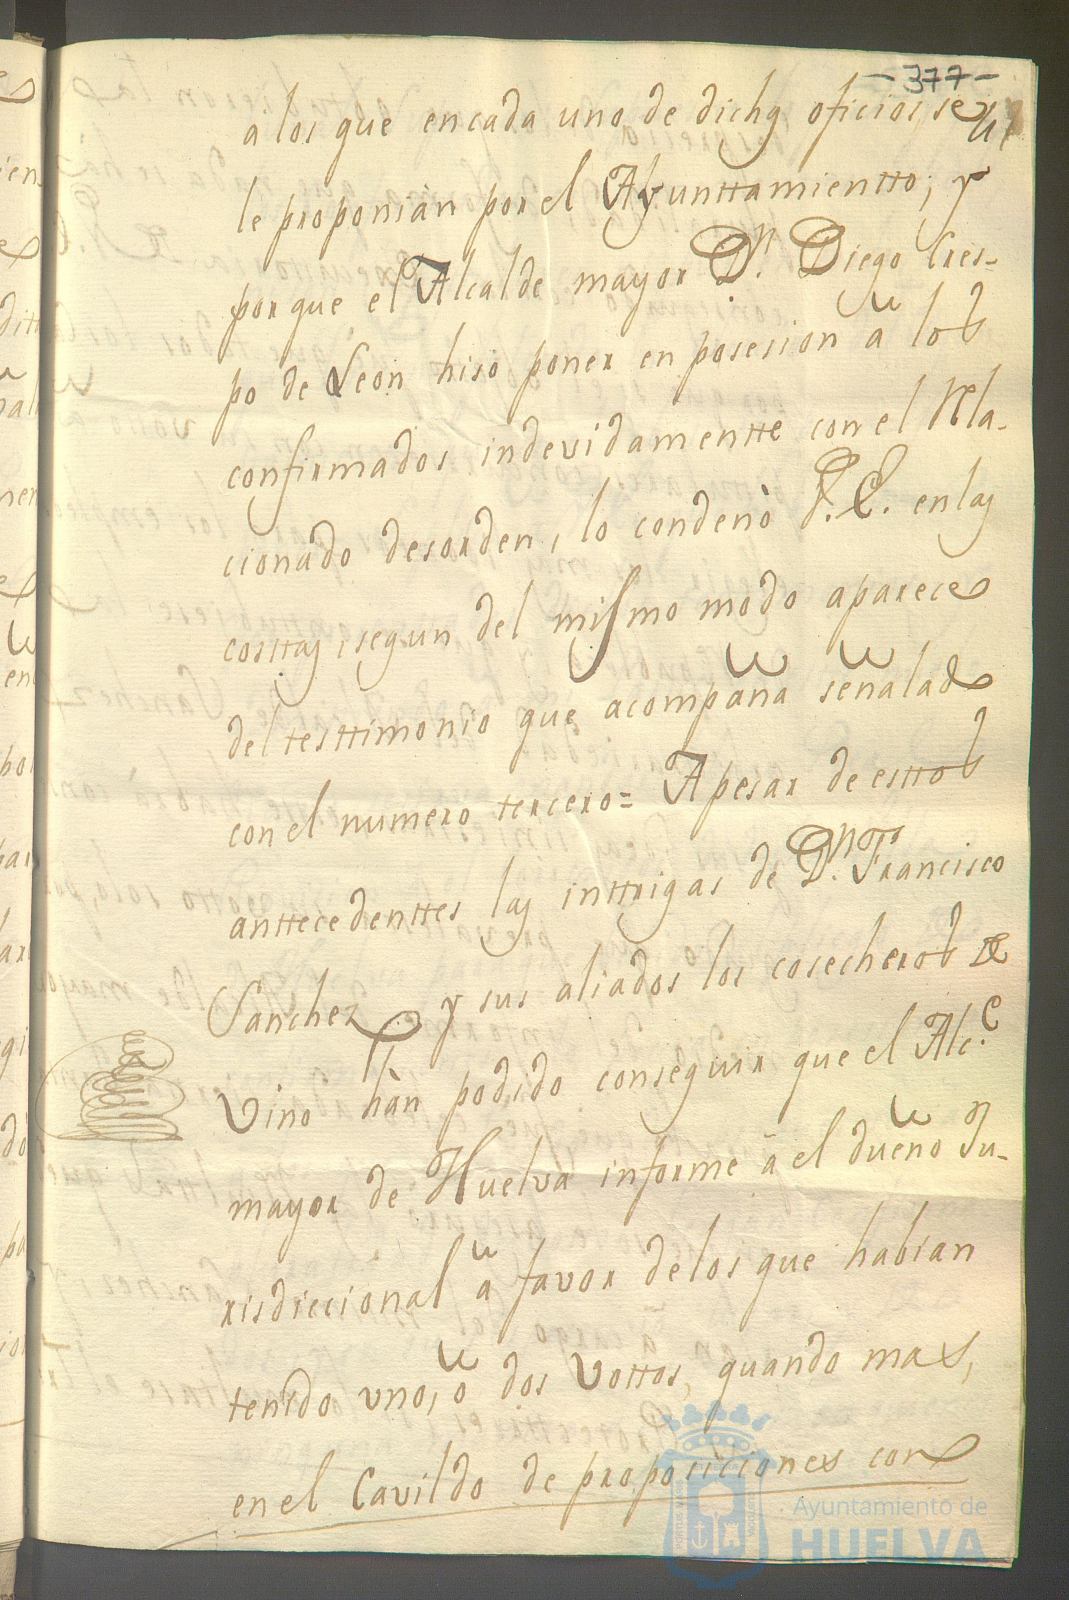 -377-
a los que en cada uno de dichos oficios se
le proponian por el Ayunttamientto; y
porque el Alcalde mayor Dn. Diego Cres-
po de Leon hiso poner en posesion â los
confirmados indevidamentte con el Rela-
cionado desorden, lo condenò S.E. en las
costtas, segun del mismo modo aparece
del testtimonio que acompaña señalado
con el numero tercero= Apesar de esttos
anttecedenttes las inttrigas de Dn. Francisco
Sanchez y sus aliados los cosecheros de
Vino hàn podido conseguir que el Alc.e
mayor de Huelva informe â el dueño Ju-
risdiccional â favor de los que habian
tenido uno, ô dos Vottos, quando mas,
en el Cavildo de proposiciones con
Ayuntamiento de
HUELVA